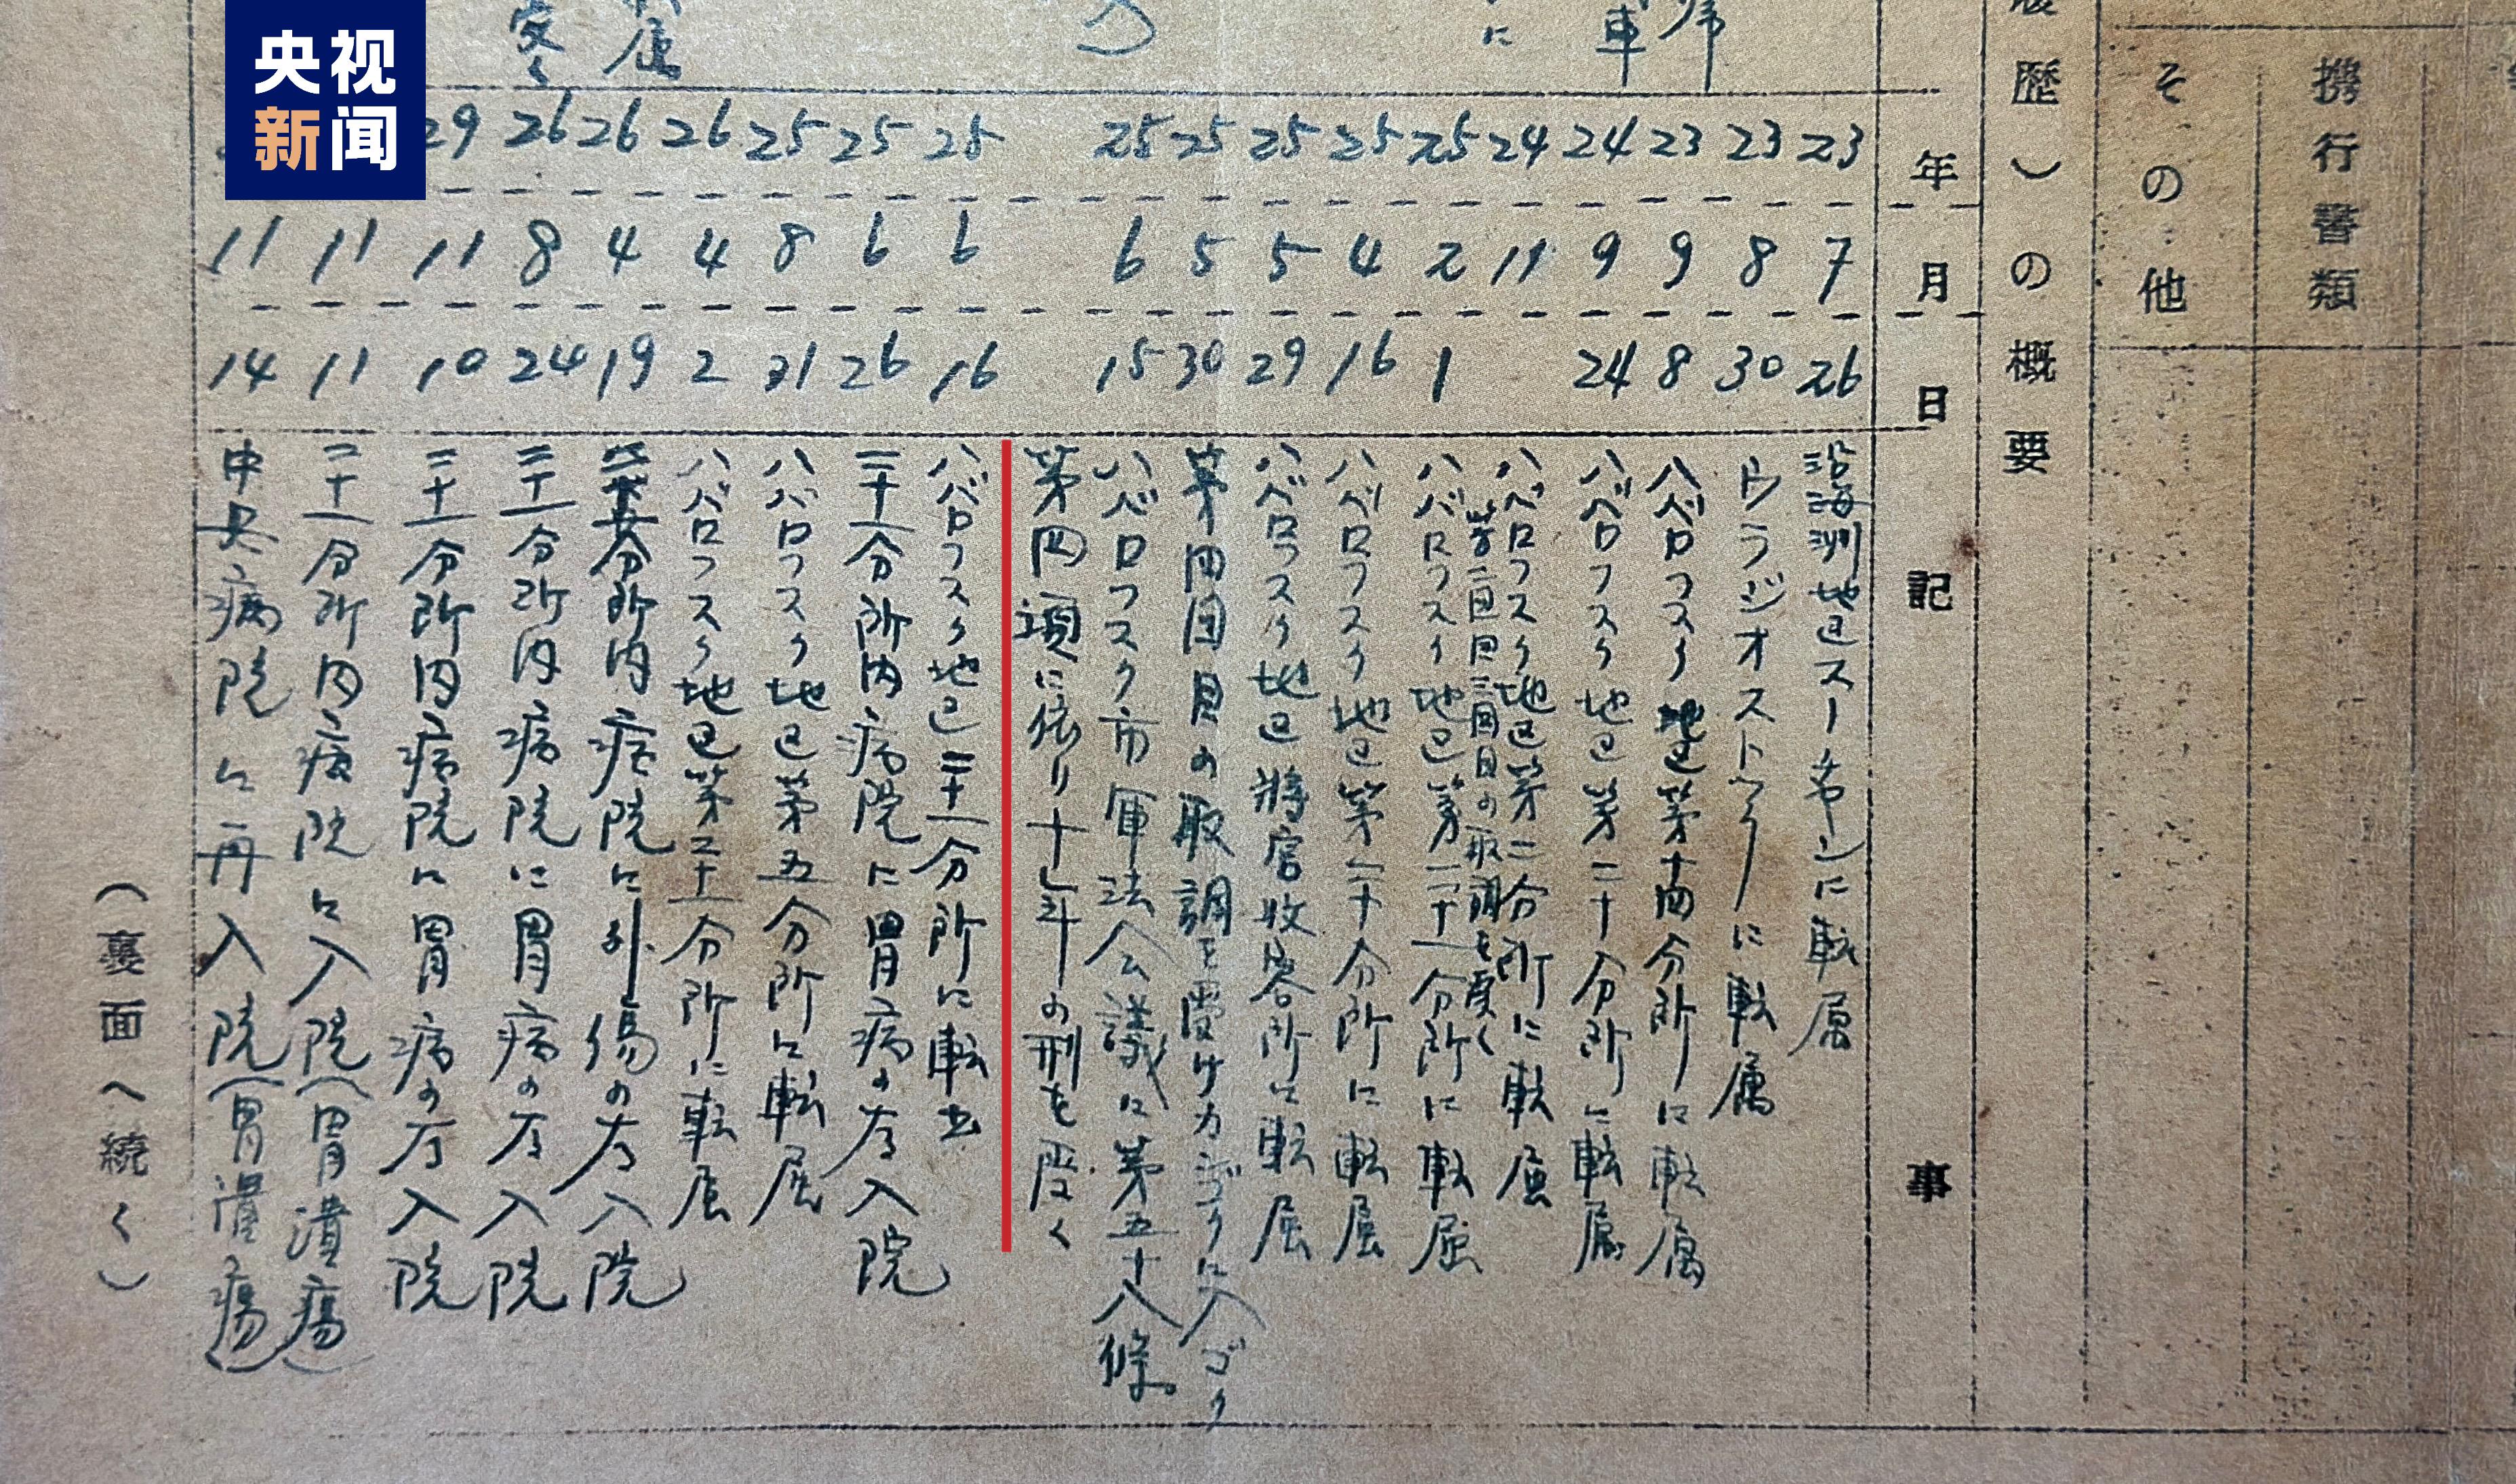 央视
新闻
携行書類
その他
歴)の概要
年月日 記事
23 7 26 沿海州地区スーチャンに転属
23 8 30 ウラジオストックに転属
23 9 8 ハバロフスク地区第十四分所に転属
24 9 24 ハバロフスク地区第二十分所に転属
24 11 ハバロフスク地区第二分所に転属
第二回三回目の取調を受く
25 2 1 ハバロフスク地区第二十一分所に転属
25 4 16 ハバロフスク地区第二十分所に転属
25 5 29 ハバロフスク地区将官收容所に転属
25 5 30 第四回目の取調を受けカンゴクに入ゴク
25 6 15 ハバロフスク市軍法会議に第五十八條
第四項に依り十年の刑を受く
25 6 16 ハバロフスク地区二十一分所に転出
25 6 26 二十一分所内病院に胃病の為入院
25 8 31 ハバロフスク地区第五分所に転属
26 4 2 ハバロフスク地区第二十一分所に転属
26 4 19 分所内病院に外傷の為入院
26 8 24 二十一分所内病院に胃病の為入院
29 11 10 二十一分所内病院に胃病の為入院
11 11 二十一分所内病院に入院(胃潰瘍)
11 14 中央病院に再入院(胃潰瘍)
(裏面へ続く)